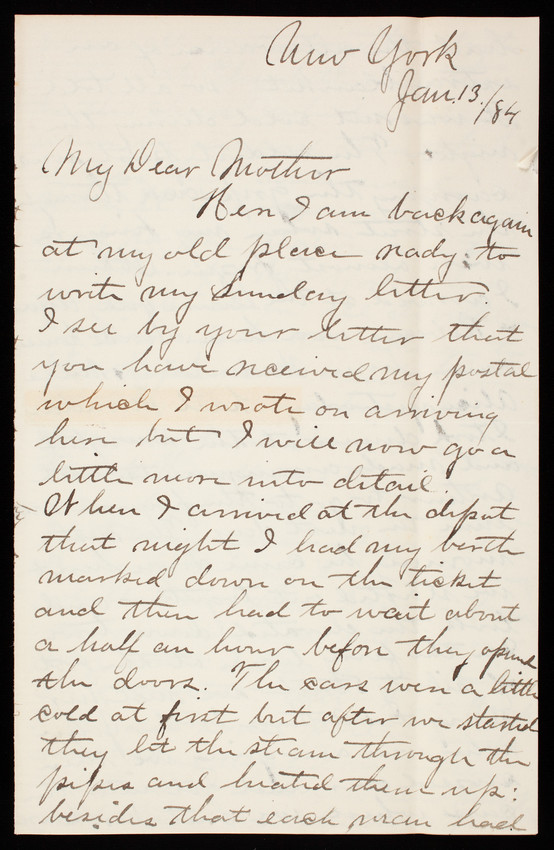 New York
Jan. 13./84
My Dear Mother
Here I am back again
at my old place ready to
write my Sunday letter.
I see by your letter that
you have received my postal
which I wrote on arriving
here but I will now go a
little more into detail.
When I arrived at the depot
that night I had my berth
marked down on the ticket
and then had to wait about
a half an hour before they opened
the doors. The cars were a little
cold at first but after we started
they let the steam through the
pipes and heated them up:
besides that each man had